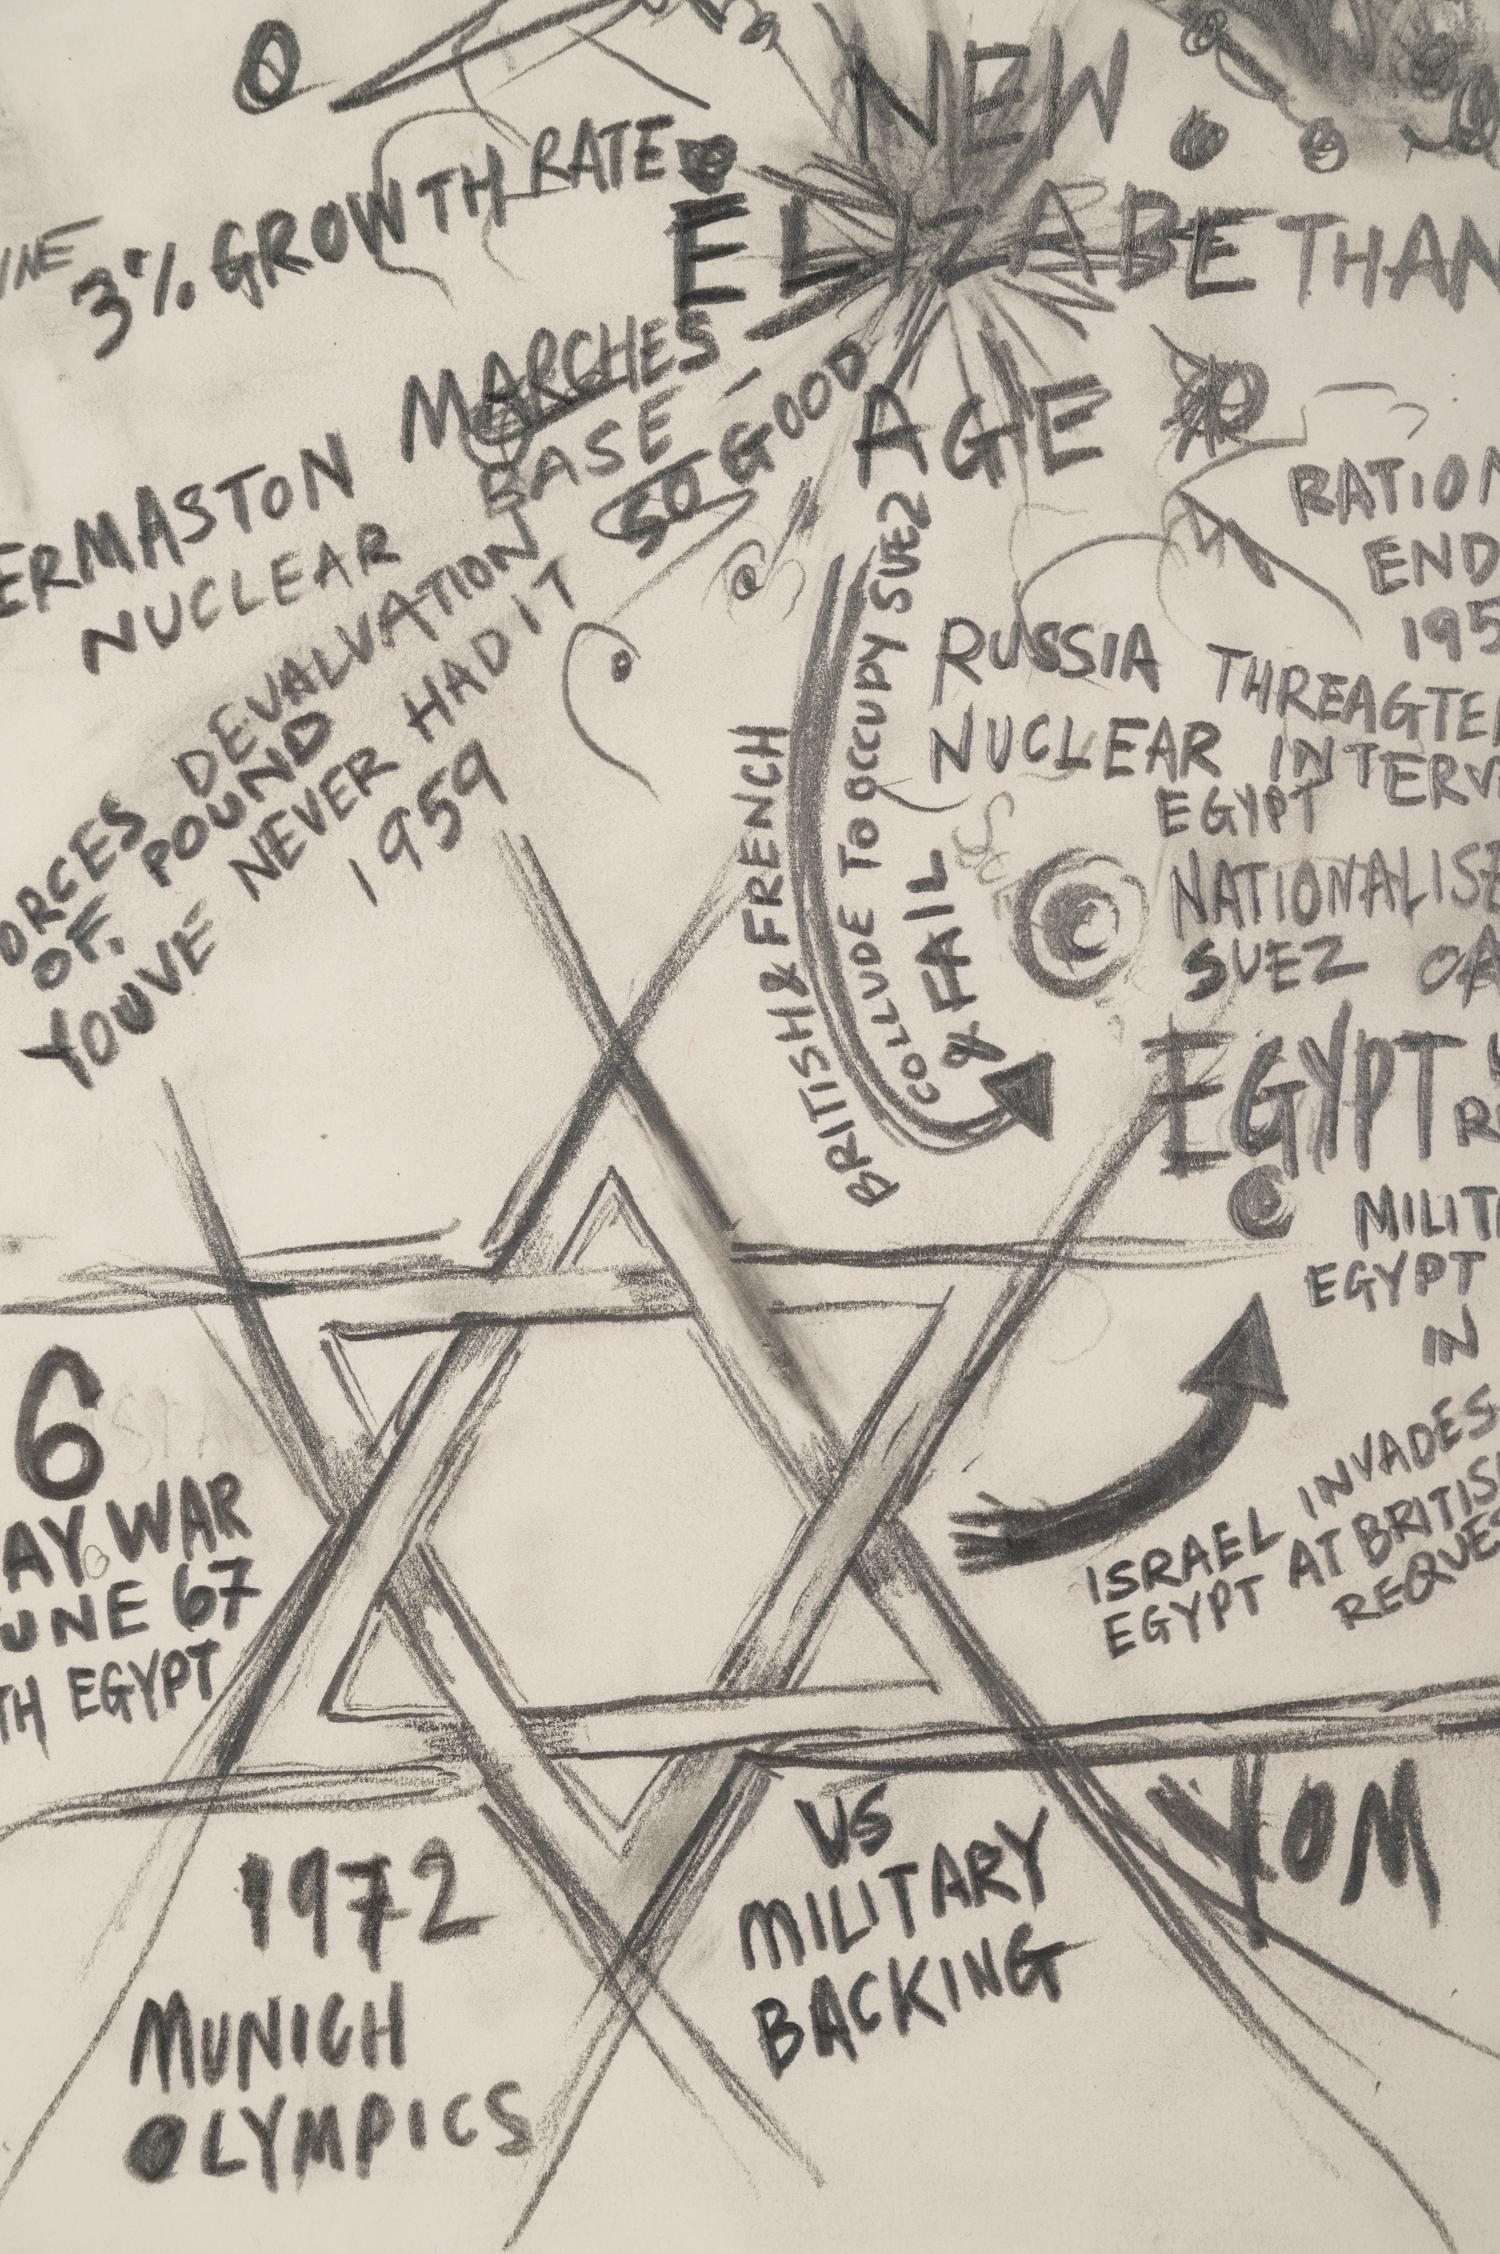 NEW
ELIZABETHAN
AGE
3% GROWTH RATE
ERMASTON MARCHES
NUCLEAR BASE
ORCES DEVALVATION
OF. POUND
YOUVE NEVER HAD IT SO GOOD
1959
BRITISH & FRENCH
COLLUDE TO OCCUPY SUEZ
& FAIL
RATION
END
195
RUSSIA THREAGTE
NUCLEAR INTERV
EGYPT
NATIONALISE
SUEZ CA
EGYPT
MILIT
EGYPT
IN
ISRAEL INVADES
EGYPT AT BRITIS
REQUE
6
AY WAR
UNE 67
TH EGYPT
1972
MUNICH
OLYMPICS
US
MILITARY
BACKING
YOM